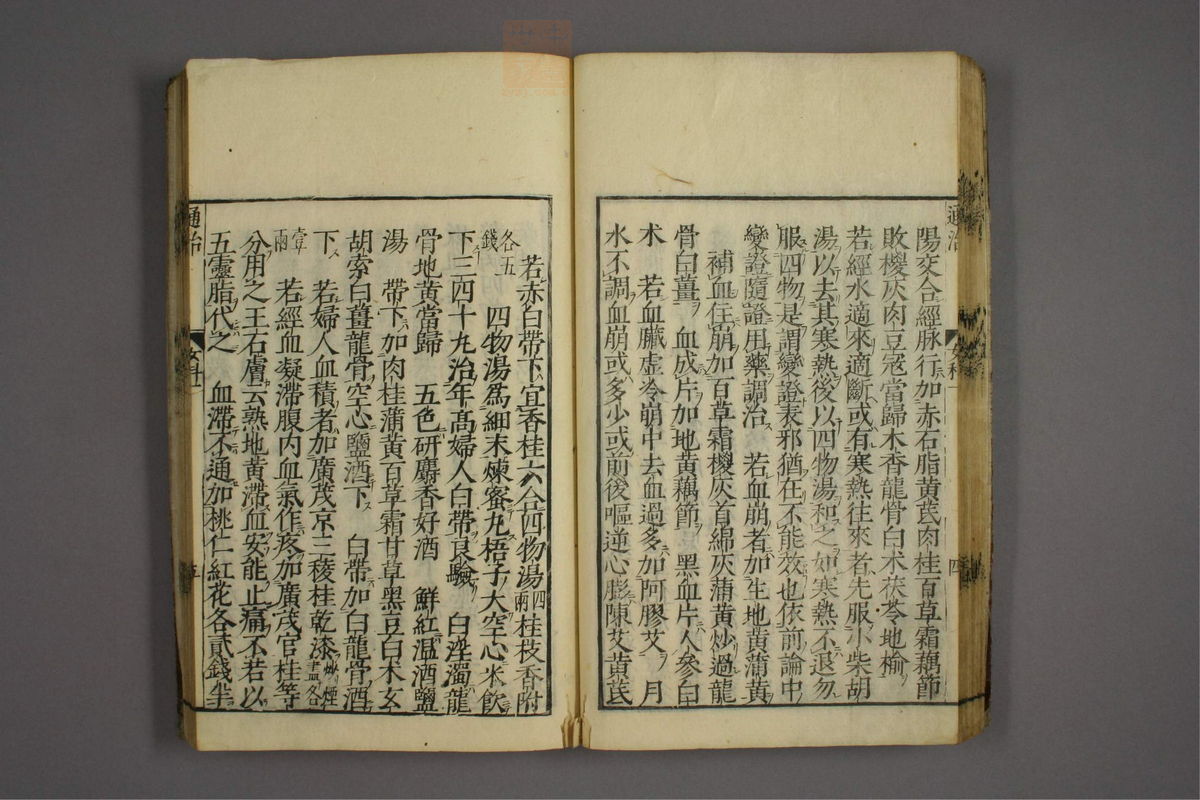 陽交合經脉行加赤石脂黄芪肉桂百草霜藕節
敗椶灰肉豆寇當歸木香龍骨白术茯苓地榆
若經水適來適斷或有寒熱往來者先服小柴胡
湯以去其寒熱後以四物湯和之如寒熱不退勿
服四物是謂變證表邪猶在不能效也依前論中
變證隨證用藥調治 若血崩者加生地黄蒲黄
補血住崩加百草霜椶灰首綿灰蒲黄炒過龍
骨白薑 血成片加地黄藕節 黑血片人參白
术 若血臟虚冷崩中去血過多加阿膠艾 月
水不調血崩或多少或前後嘔逆心膨陳艾黄芪
通治 女科一 四
若赤白帶下宜香桂六合四物湯四兩桂枝香附
各五錢 四物湯爲細末煉蜜丸梧子大空心米飲
下三四十丸治年髙婦人白帶良驗 白淫濁龍
骨地黄當歸 五色研麝香好酒 鮮紅温酒鹽
湯 帶下加肉桂蒲黄百草霜甘草黑豆白术玄
胡索白薑龍骨空心鹽酒下 白帶加白龍骨酒
下 若婦人血積者加廣茂京三稜桂乾漆炒煙盡各
壹兩 若經血凝滯腹内血氣作疼加廣茂官桂等
分用之王石膚云熟地黄滯血安能止痛不若以
五靈脂代之 血滯不通加桃仁紅花各貳錢半
通治 女科一